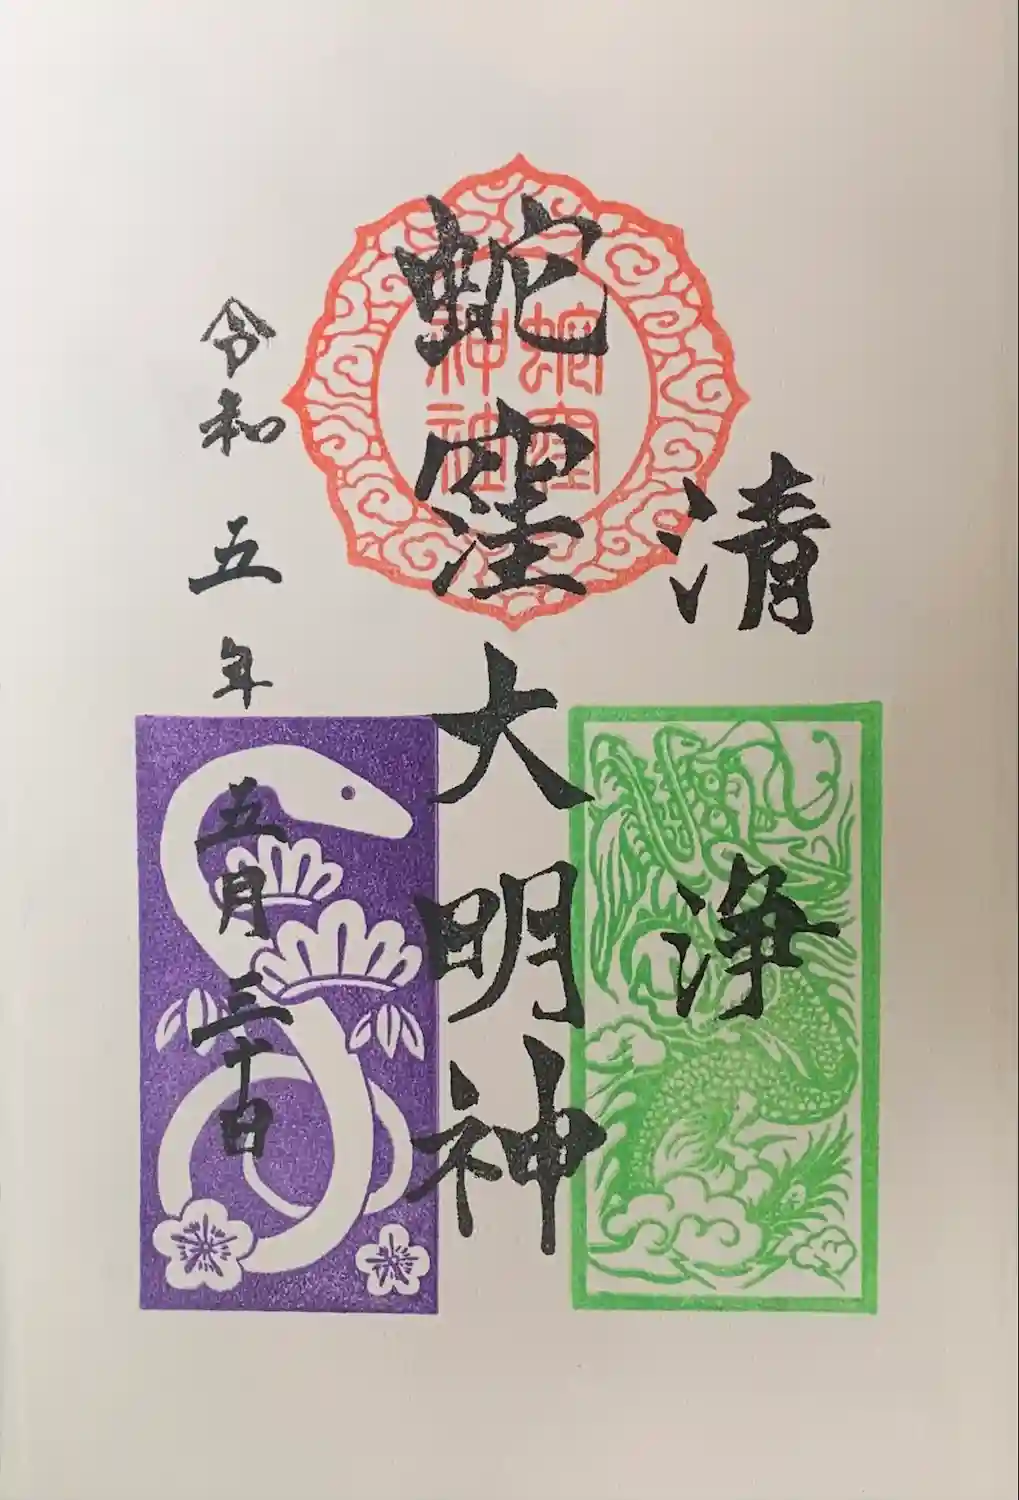 清浄
蛇窪大明神
蛇窪
神社
令和五年五月三十日